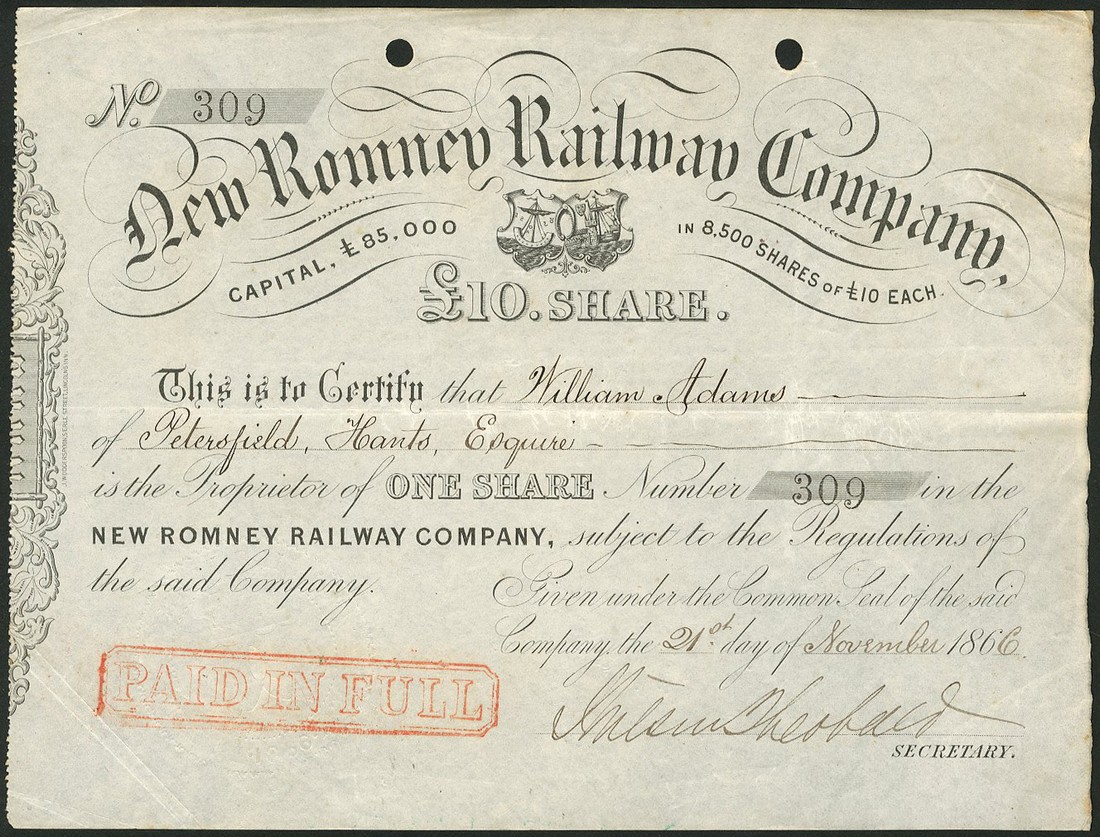 No. 309
New Romney Railway Company,
CAPITAL, £85,000
IN 8,500 SHARES OF £10 EACH.
£10. SHARE.
This is to Certify that William Adams
of Petersfield, Hants, Esquire
is the Proprietor of ONE SHARE Number 309 in the
NEW ROMNEY RAILWAY COMPANY, subject to the Regulations of
the said Company.
Given under the Common Seal of the said
Company, the 21st. day of November 1866
PAID IN FULL
SECRETARY.